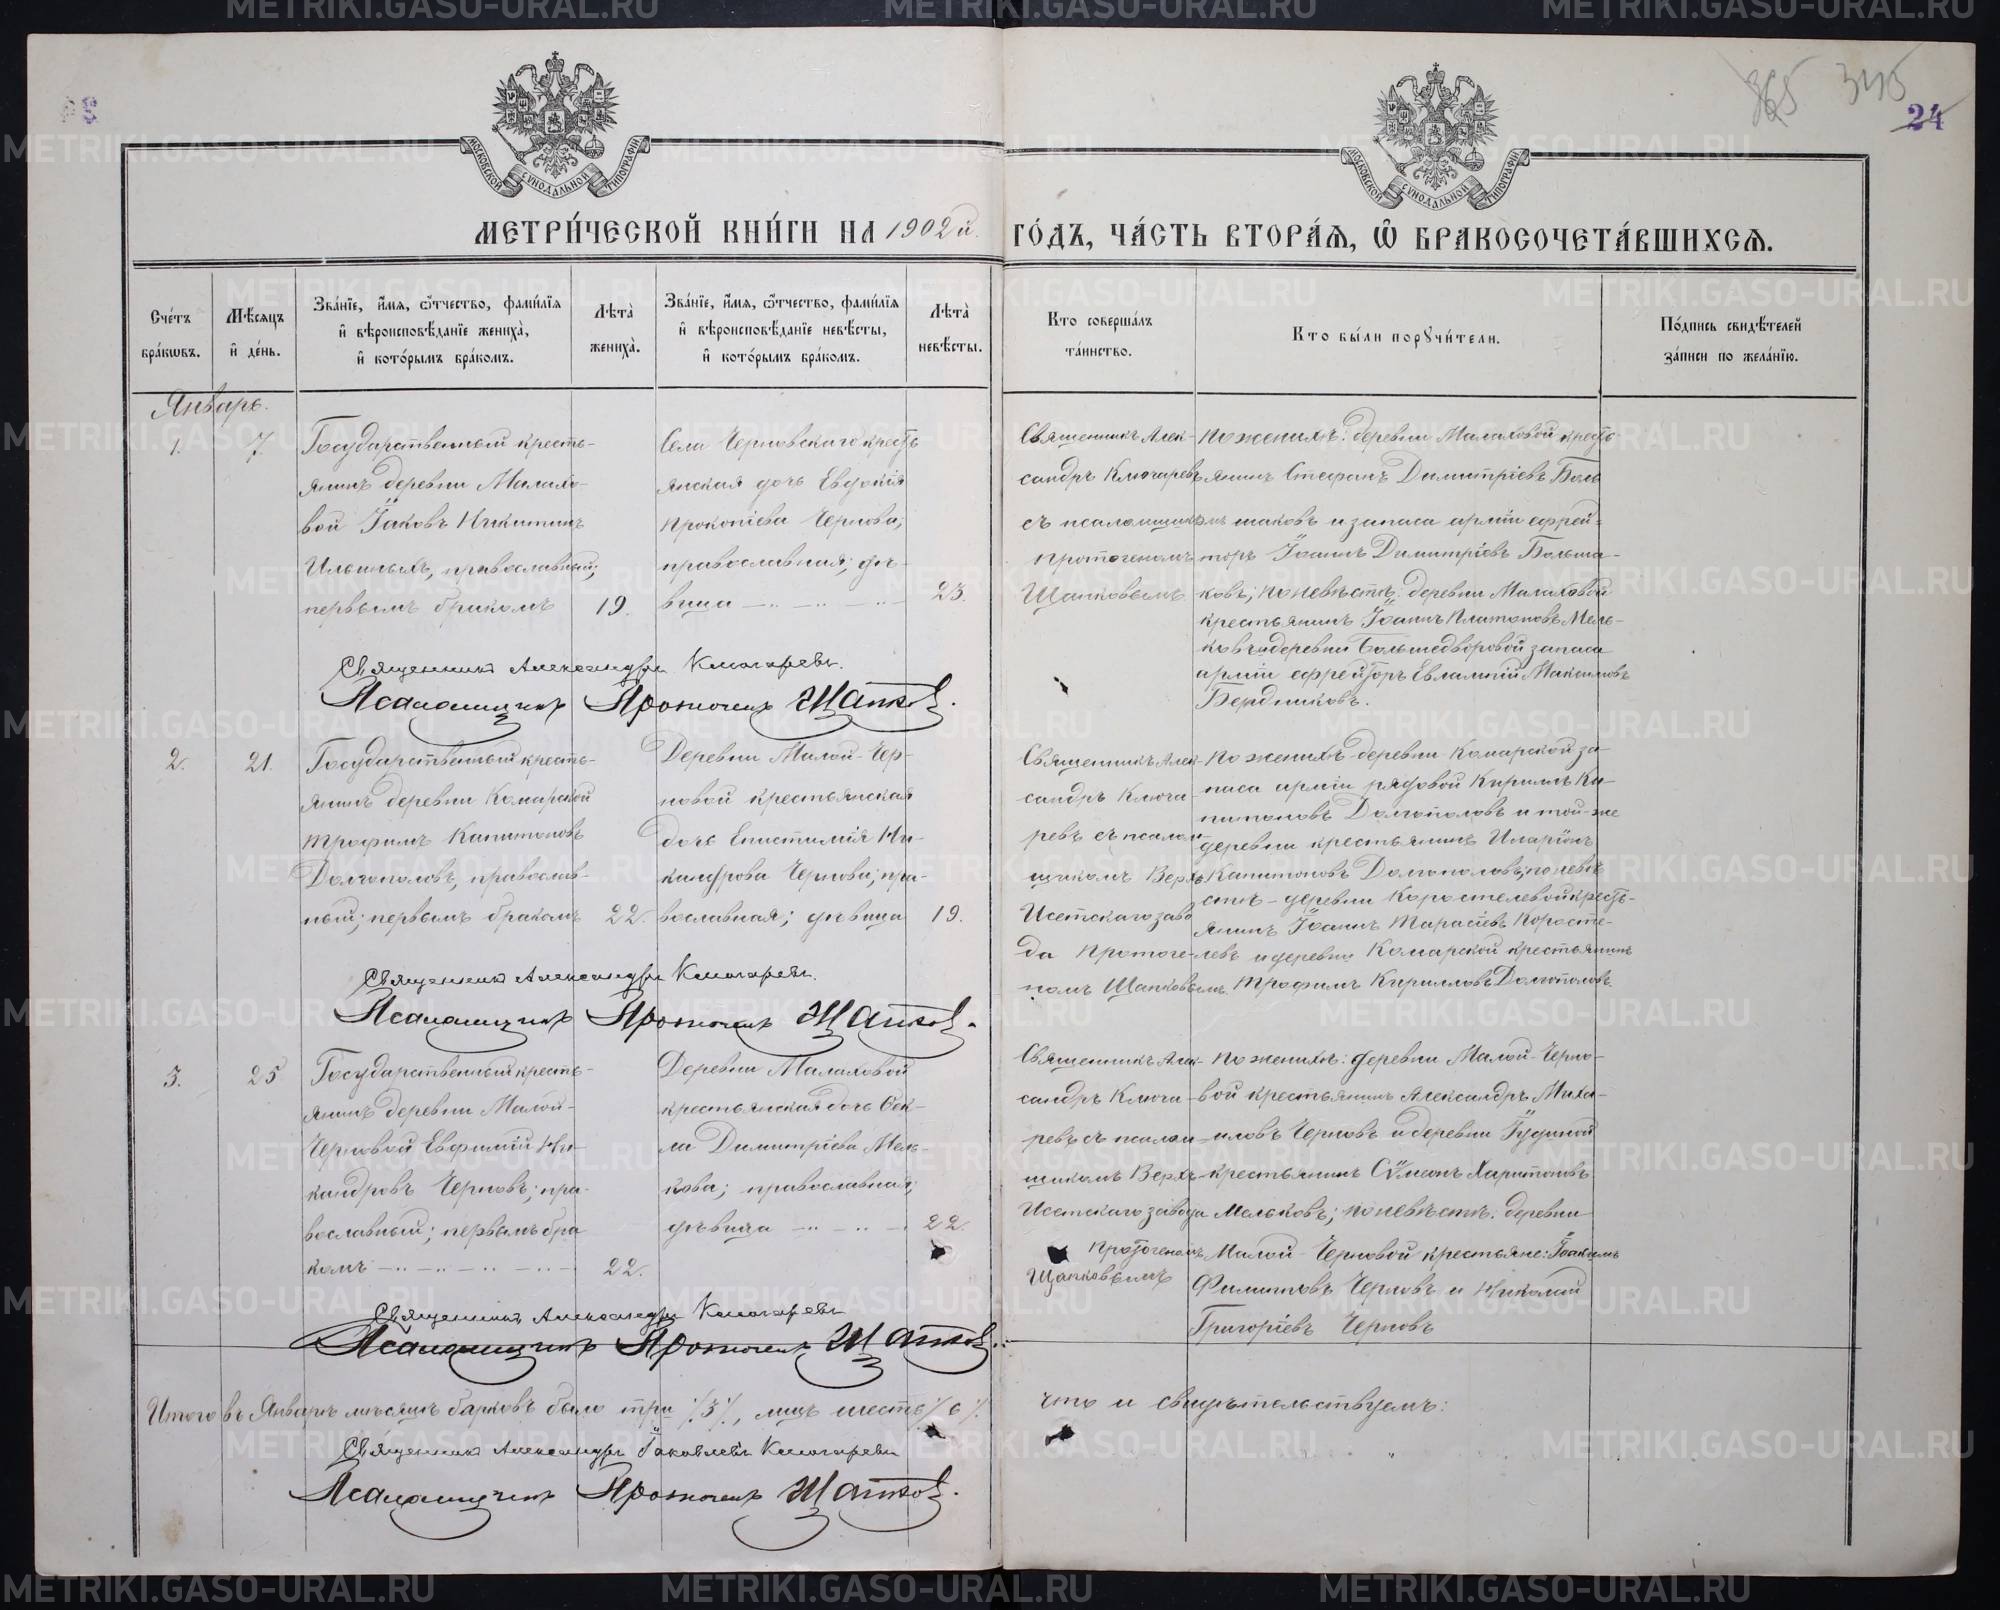 365 345
24
МОСКОВСКОЙ СѴНОДАЛЬНОЙ ТИПОГРАФІИ
МОСКОВСКОЙ СѴНОДАЛЬНОЙ ТИПОГРАФІИ
МЕТРИ́ЧЕСКОЙ КНИ́ГИ НА 1902й ГО́ДЪ, ЧА́СТЬ ВТОРА́Ѧ, Ѡ҆ БРАКОСОЧЕТА́ВШИХСѦ.
Сче́тъ бра́кѡвъ.
Мѣ́сѧцъ и҆ де́нь.
Зва́нїе, и҆́мѧ, ѻ҆́тчество, фами́лїѧ и҆ вѣроисповѣ́данїе жениха̀, и҆ кото́рымъ бра́комъ.
Лѣта̀ жениха̀.
Зва́нїе, и҆́мѧ, ѻ҆́тчество, фами́лїѧ и҆ вѣроисповѣ́данїе невѣ́сты, и҆ кото́рымъ бра́комъ.
Лѣта̀ невѣ́сты.
Кто соверша́лъ та́инство.
Кто бы́ли порꙋчи́тели.
По́дпись свидѣ́телей за́писи по жела́нїю.
Январь.
1.
7.
Государственный кресть-
янинъ деревни Малахо-
вой Іаковъ Никитинъ
Ильиныхъ, православный;
первымъ бракомъ
19.
Села Черновскаго кресть
янская дочь Евдокія
Прокопіева Чернова;
православная; дѣ-
вица
23.
Священникъ Алек-
сандръ Ключаревъ
съ псаломщикомъ
Протогеномъ
Щапковымъ
По женихѣ: деревни Малаховой кресть
янинъ Стефанъ Димитріевъ Боль
шаковъ и запаса арміи ефрей-
торъ Іоаннъ Димитріевъ Больша-
ковъ; по невѣстѣ: деревни Малаховой
крестьянинъ Іоаннъ Платоновъ Мель-
ковъ и деревни Большедворовой запаса
арміи ефрейторъ Евлампій Максимовъ
Бердниковъ.
Священникъ Александръ Ключаревъ.
Псаломщикъ Протогенъ Щапков.
2.
21.
Государственный кресть-
янинъ деревни Комарской
Трофимъ Капитоновъ
Долгополовъ, православ-
ный; первымъ бракомъ
22.
Деревни Малой-Чер-
новой крестьянская
дочь Епистимія Ни-
кандрова Чернова; пра-
вославная; дѣвица
19.
Священникъ Алек-
сандръ Ключа
ревъ съ псалом-
щикомъ Верхъ
Исетскаго заво
да Протоге-
номъ Щапковымъ.
По женихѣ - деревни Комарской за-
паса арміи рядовой Кириллъ Ка-
питоновъ Долгополовъ и той-же
деревни крестьянинъ Иларіонъ
Капитоновъ Долгополовъ; по невѣ
стѣ - деревни Коростелевой кресть-
янинъ Іоаннъ Тарасіевъ Коросте-
левъ и деревни Комарской крестьянинъ
Трофимъ Кирилловъ Долгополовъ.
Священникъ Александръ Ключаревъ.
Псаломщикъ Протогенъ Щапков.
3.
25
Государственный кресть-
янинъ деревни Малой-
Черновой Евфимій Ни-
кандровъ Черновъ; пра-
вославный; первымъ бра
комъ
22.
Деревни Малаховой
крестьянская дочь Фек-
ла Димитріева Мель-
кова; православная;
дѣвица
22.
Священникъ Алек-
сандръ Ключа-
ревъ съ псалом-
щикомъ Верхъ-
Исетскаго завода
Протогеномъ
Щапковымъ
По женихѣ: деревни Малой-Черно-
вой крестьянинъ Александръ Миха-
иловъ Черновъ и деревни Гудиной
крестьянинъ Сѵмеонъ Харитоновъ
Мельковъ; по невѣстѣ: деревни
Малой Черновой крестьяне: Іоакимъ
Филипповъ Черновъ и Николай
Григоріевъ Черновъ
Священникъ Александръ Ключаревъ
Псаломщикъ Протогенъ Щапков.
Итого въ Январѣ мѣсяцѣ барковъ было три /3/, лицъ шесть /6/. что и свидѣтельствуемъ:
Священникъ Александръ Іаковлевъ Ключаревъ
Псаломщикъ Протогенъ Щапков.
METRIKI.GASO-URAL.RU